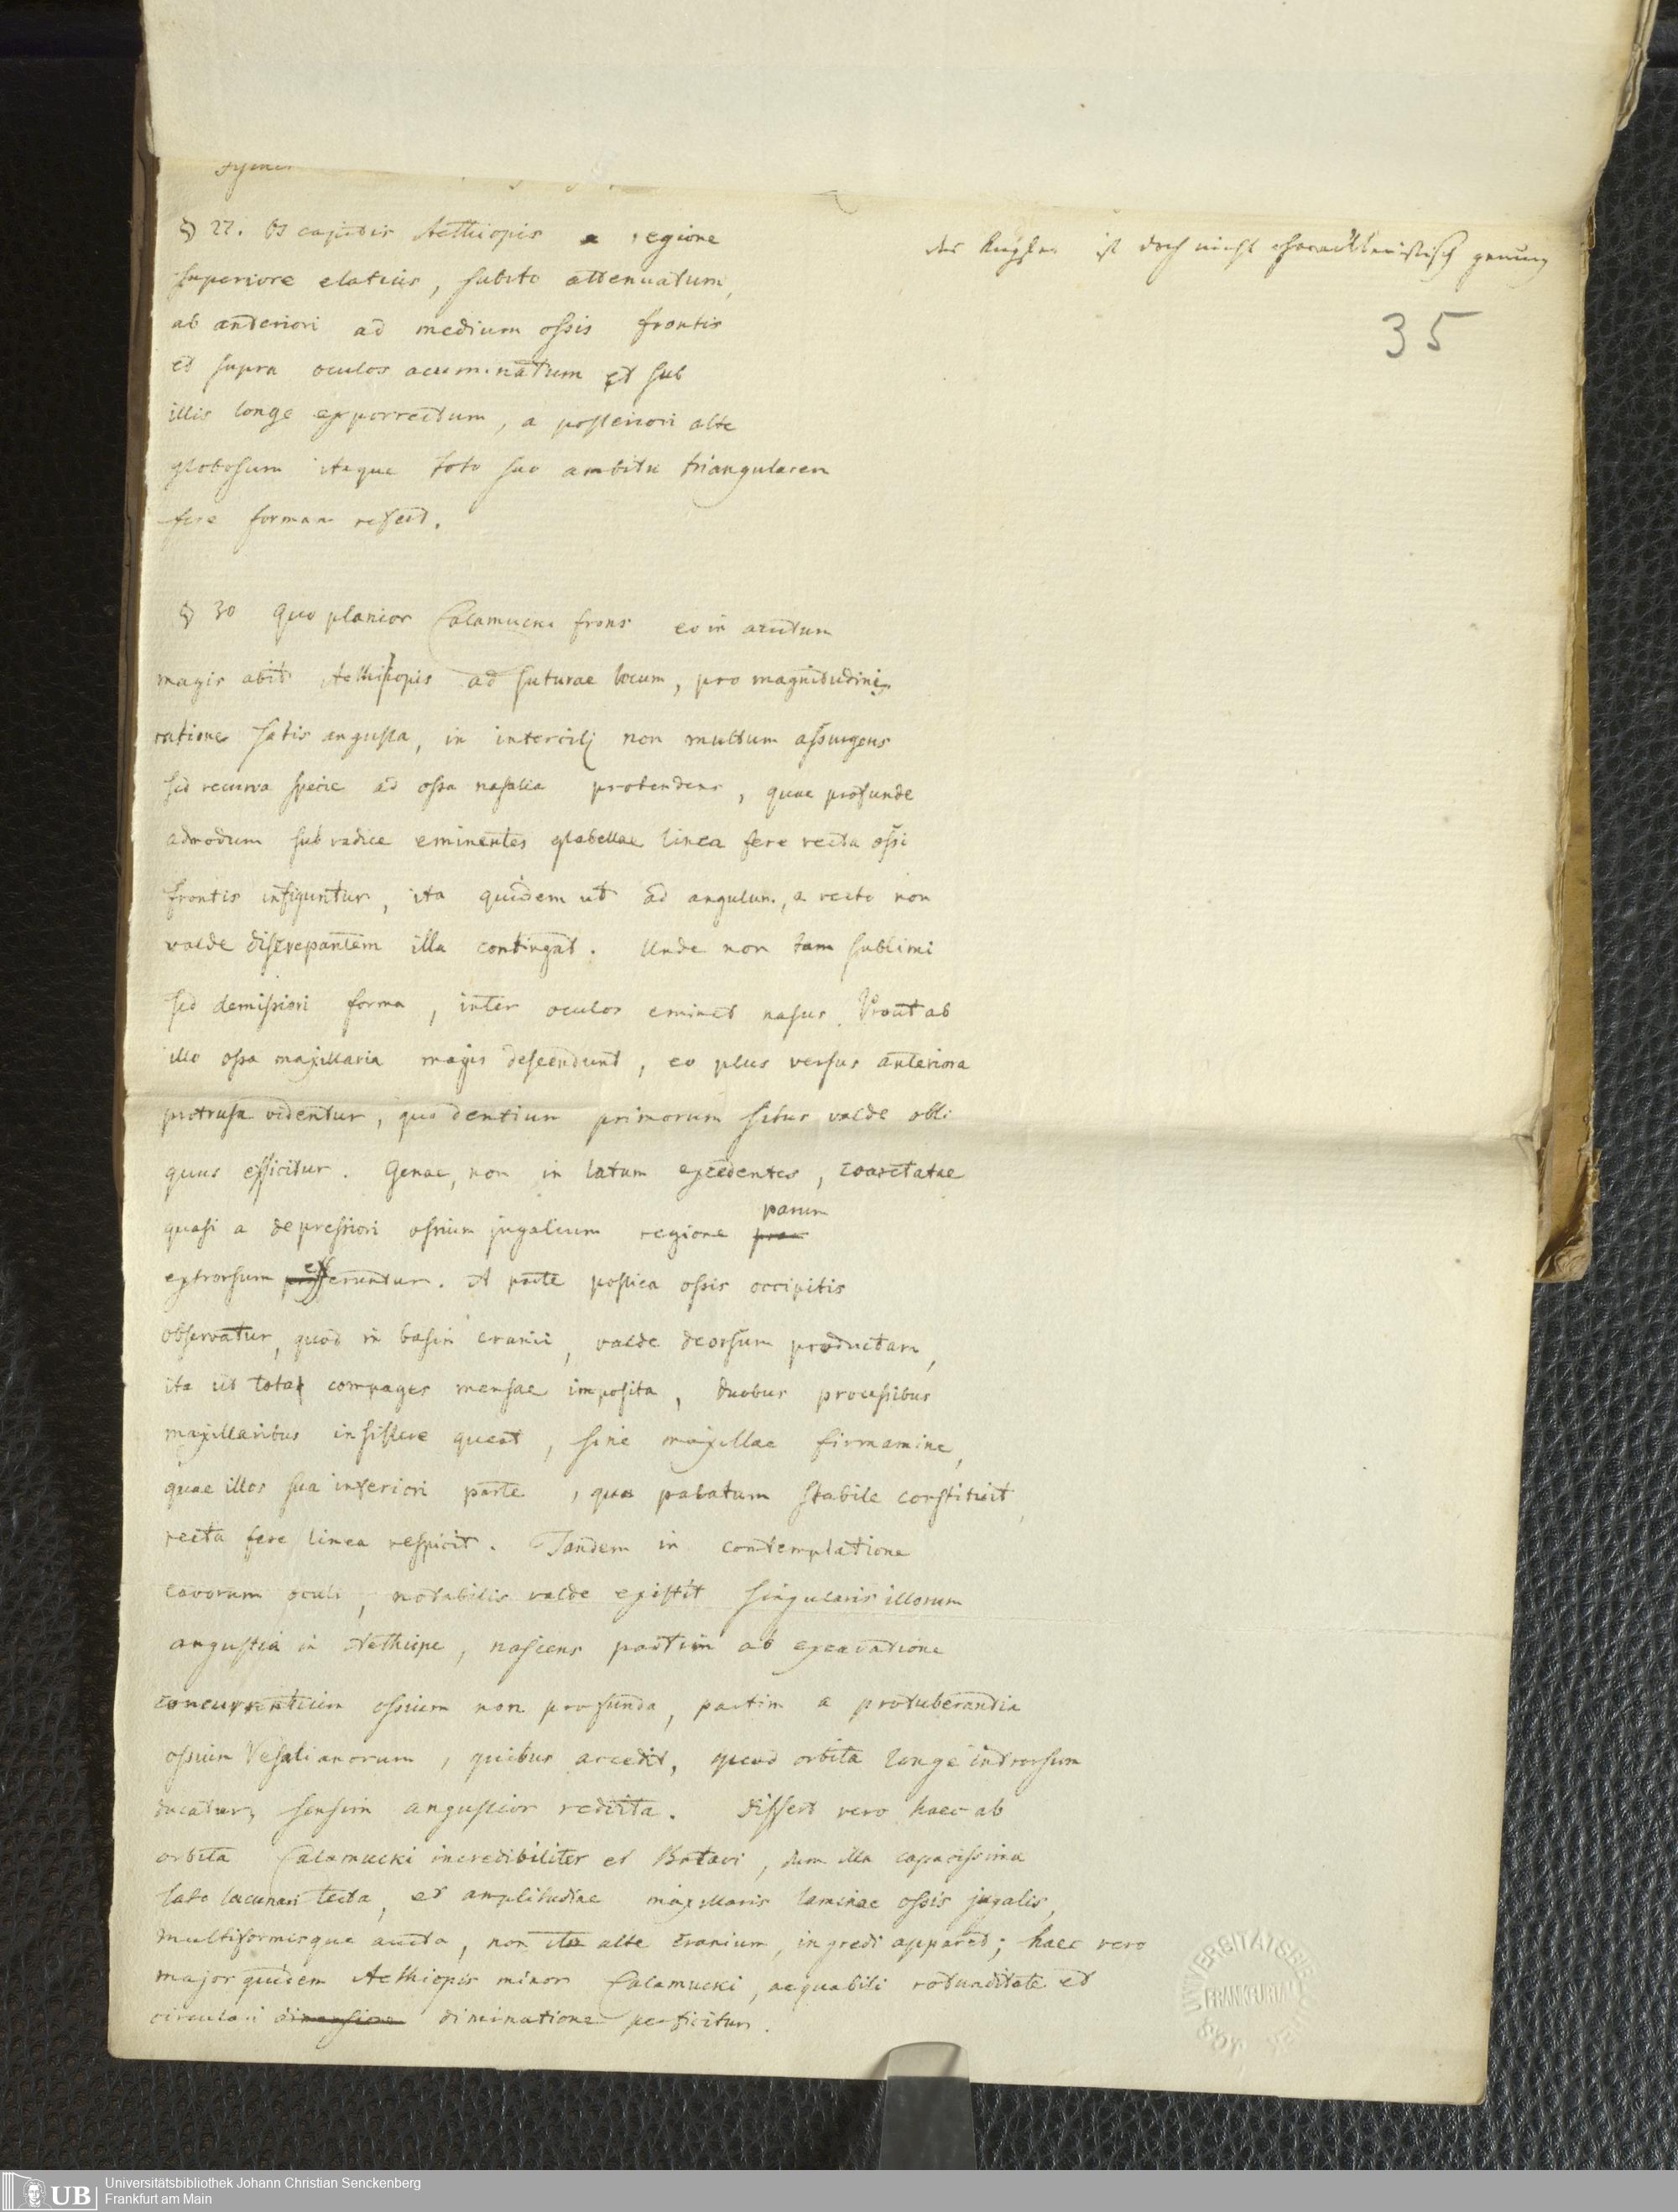 § 27. Os capitis Aethiopis a regione
superiore elatius, subito attenuatum,
ab anteriori ad medium ossis frontis
et supra oculos acuminatum et sub
illis longe exporrectum, a posteriori alte
globosum itaque toto suo ambitu triangularem
fere formam refert.
ist doch nicht charackteristisch genung
35
§ 30 Quo planior Calamucki frons eo in acutum
magis abit Aethiopis ad suturae locum, pro magnitudinis
ratione satis angusta, in intercilj non multum assurgens
sed recurva specie ad ossa nasalia protendens, quae profunde
admodum sub radice eminentes glabellae linea fere recta ossi
frontis infiguntur, ita quidem ut ad angulum, a recto non
valde discrepantem illa contingat. Unde non tam sublimi
sed demissiori forma, inter oculos eminet nasus. Prout ab
illo ossa maxillaria magis descendunt, eo plus versus anteriora
protrusa videntur, quo dentium primorum situs valde obli
quus efficitur. Genae, non in latum excedentes, coarctatae
quasi a depressiori ossium jugalium regione parum
extrorsum efferuntur. A parte postica ossis occipitis
observatur, quod in basin cranii, valde deorsum productam,
ita ut tota compages mensae imposita, duobus processibus
maxillaribus insistere queat, sine maxillae firmamine,
quae illos sua inferiori parte, qua palatum stabile constituit,
recta fere linea respicit. Tandem in contemplatione
cavorum oculi, notabilis valde existit singularis illorum
angustia in Aethiope, nascens partim ab excavatione
concurrentium ossium non profunda, partim a protuberantia
ossium Vesalianorum, quibus accedit, quod orbita longe introrsum
ducatur, sensim angustior reddita. Differt vero haec ab
orbita Calamucki incredibiliter et Batavi, dum illa capacissima
lato lacunari tecta, et amplitudine maxillaris laminae ossis jugalis,
multiformisque aucta, non ita alte cranium, ingredi apparet; haec vero
major quidem Aethiopis minor Calamucki, aequabili rotunditate et
circulari dimensione diminatione perficitur.
UNIVERSITÄTSBIBLIOTHEK
FRANKFURT
Universitätsbibliothek Johann Christian Senckenberg
Frankfurt am Main
UB